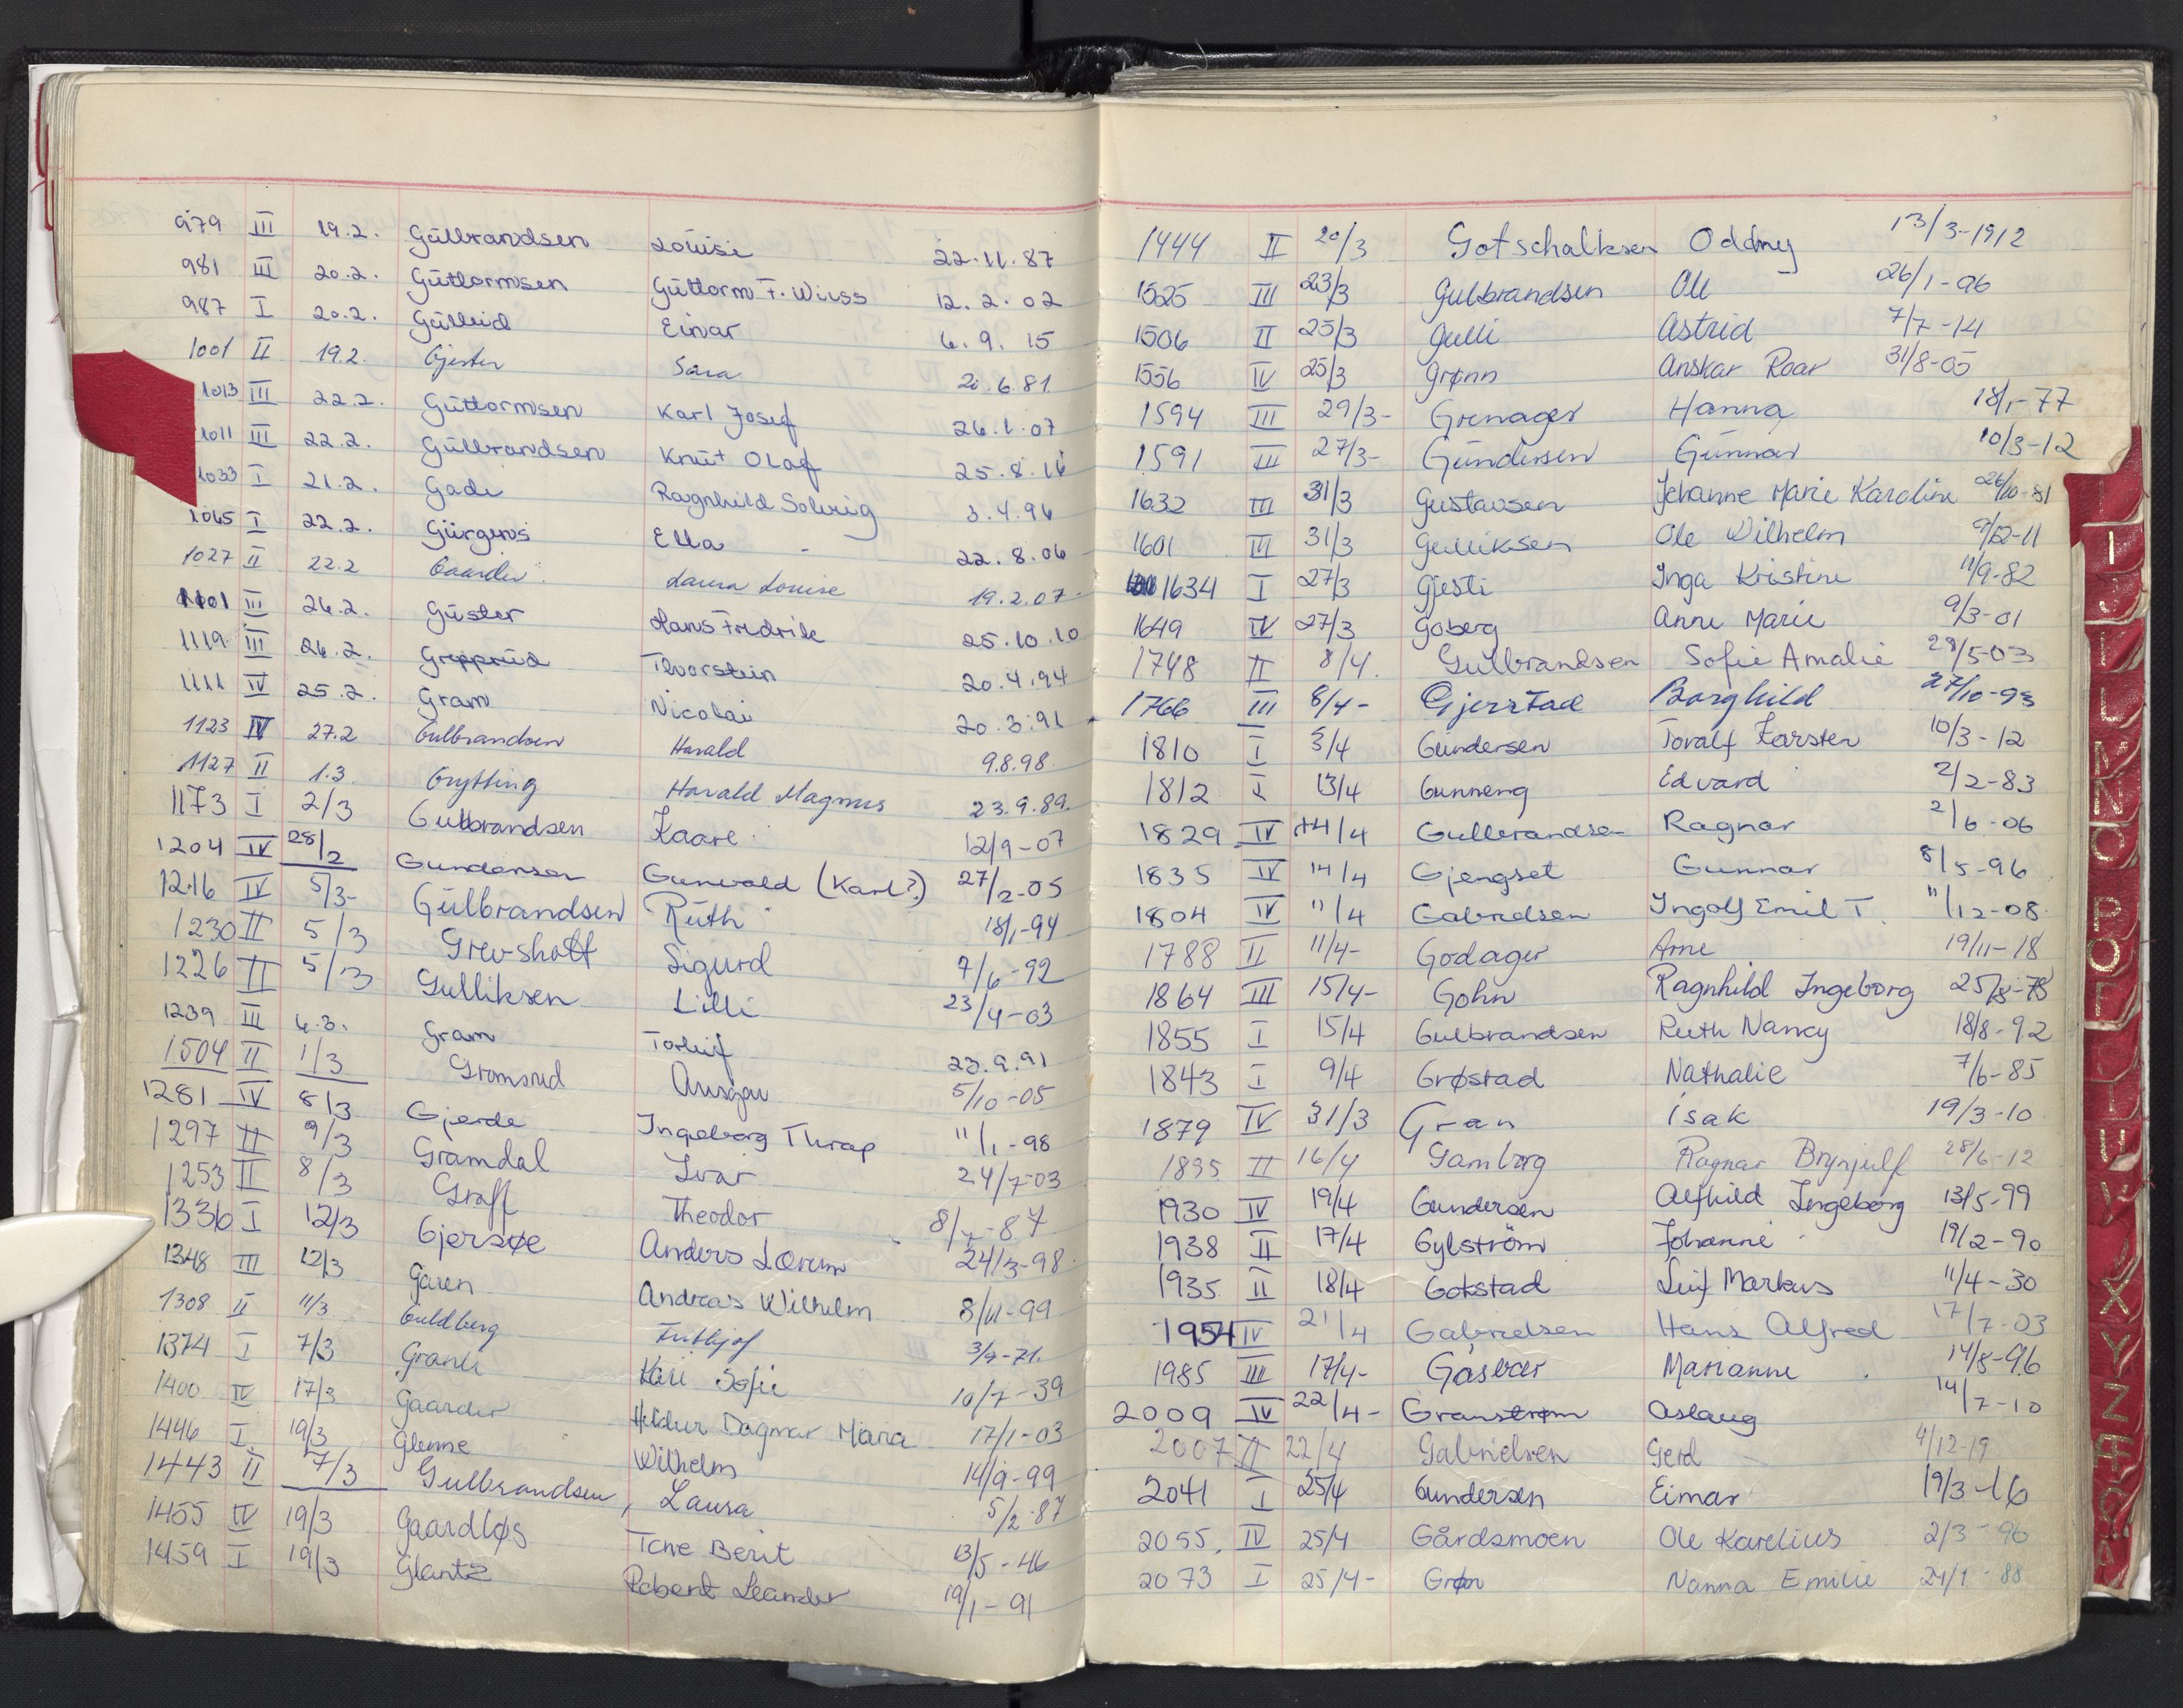 979 III 19.2. Gulbrandsen Louise 22.11.87
981 III 20.2. Guttormsen Guttorm F. Wiiss 12.2.02
987 I 20.2. Gulleid Einar 6.9.15
1001 II 19.2. Gjester Sara 21.6.81
1013 III 22.2. Guttormsen Karl Josef 26.1.07
1011 III 22.2. Gulbrandsen Knut Olaf 25.8.16
1033 I 21.2. Gade Ragnhild Solveig 3.4.96
1065 I 22.2. Gurgens Ella 22.8.06
1027 II 22.2 Gaarder Laura Louise 19.2.07
1101 III 26.2. Guster Hans Fredrik 25.10.10
1119 III 26.2. Grepperud Thorstein 20.4.94
1111 IV 25.2. Gram Nicolai 20.3.91
1123 IV 27.2 Gulbrandsen Harald 9.8.98
1127 II 1.3. Grytting Harald Magnus 23.9.89.
1173 I 2/3 Gulbrandsen Kaare 12/9-07
1204 IV 28/2 Gundersen Gunvald (Karl?) 27/2-05
1216 IV 5/3- Gulbrandsen Ruth 18/1-94
1230 II 5/3 Grev-shott Sigurd 7/6-92
1226 II 5/3 Gulliksen Lilli 23/4-03
1239 III 6.3. Gram Torleif 23.9.91
1504 II 1/3 Gromsrud Ansgar 5/10-05
1281 IV 8/3 Gjerde Ingeborg Thrap 11/1-98
1297 II 9/3 Gramdal Ivar 24/7-03
1253 II 8/3 Graff Theodor 8/7-87
1336 I 12/3 Gjersøe Anders Lorum 24/3-98
1348 III 12/3 Garen Andreas Wilhelm 8/11-99
1308 II 11/3 Guldberg Fritjof 3/7-71.
1374 I 7/3 Granli Kari Sofie 10/7-39
1400 IV 17/3 Gaarder Hildur Dagmar Maria 17/1-03
1446 I 19/3 Glenne Wilhelm 14/9-99
1443 II 17/3 Gulbrandsen, Laura 5/2-87
1455 IV 19/3 Gaardløs Tone Berit 13/5-46
1459 I 19/3 Glantz Robert Leander 19/1-91
1444 II 20/3 Gotschalksen Oddny 13/3-1912
1525 III 23/3 Gulbrandsen Ole 26/1-06
1506 II 25/3 Gulli Astrid 7/7-14
1556 IV 25/3 Grønn Anskar Roar 31/8-05
1594 III 29/3- Grenager Hanna 18/1-77
1591 III 27/3- Gundersen Gunnar 10/3-12
1632 III 31/3 Gustavsen Johanne Marie Karoline 26/10-81
1601 III 31/3 Gulliksen Ole Wilhelm 9/12-11
1634 I 27/3 Gjesti Inga Kristine 11/9-82
1649 IV 27/3 Goberg Anne Marie 9/3-01
1748 II 8/4. Gulbrandsen Sofie Amalie 28/5-03
1766 III 8/4- Gjerstad Borghild 27/10-93
1810 I 5/4 Gundersen Toralf Karsten 10/3-12
1812 I 13/4 Gunneng Edvard 2/2-83
1829 IV 14/4 Gulbrandsen Ragnar 2/6-06
1835 IV 14/4 Gjengset Gunnar 8/5-96
1804 IV 11/4 Gabrielsen Ingolf Emil T. 11/12-08
1788 II 11/4- Godager Arne 19/11-18
1864 III 15/4- Gohn Ragnhild Ingeborg 25/8-78
1855 I 15/4 Gulbrandsen Ruth Nancy 18/8-92
1843 I 9/4 Grøstad Nathalie 7/6-85
1879 IV 31/3 Gran Isak 19/3-10
1895 II 16/4 Gamborg Ragnar Brynjulf 28/6-12
1930 IV 19/4 Gundersen Alfhild Ingeborg 13/5-99
1938 II 17/4 Gylström Johanne 19/2-90
1935 II 18/4 Gokstad Leif Markus 11/4-30
1954 IV 21/4 Gabrielsen Hans Alfred 17/7-03
1985 III 17/4- Gåsvær Marianne 14/8-96
2009 IV 22/4- Granstrøm Aslaug 14/7-10
2007 II 22/4 Gabrielsen Gerd 4/12-19
2041 I 25/4 Gundersen Eimar 19/3-16
2055. IV 25/4 Gårdsmoen Ole Karelius 2/3-96
2073 I 25/4- Grøn Nanna Emilie 24/1-88
I
J
L
N
O
P
V
X
Y
Z